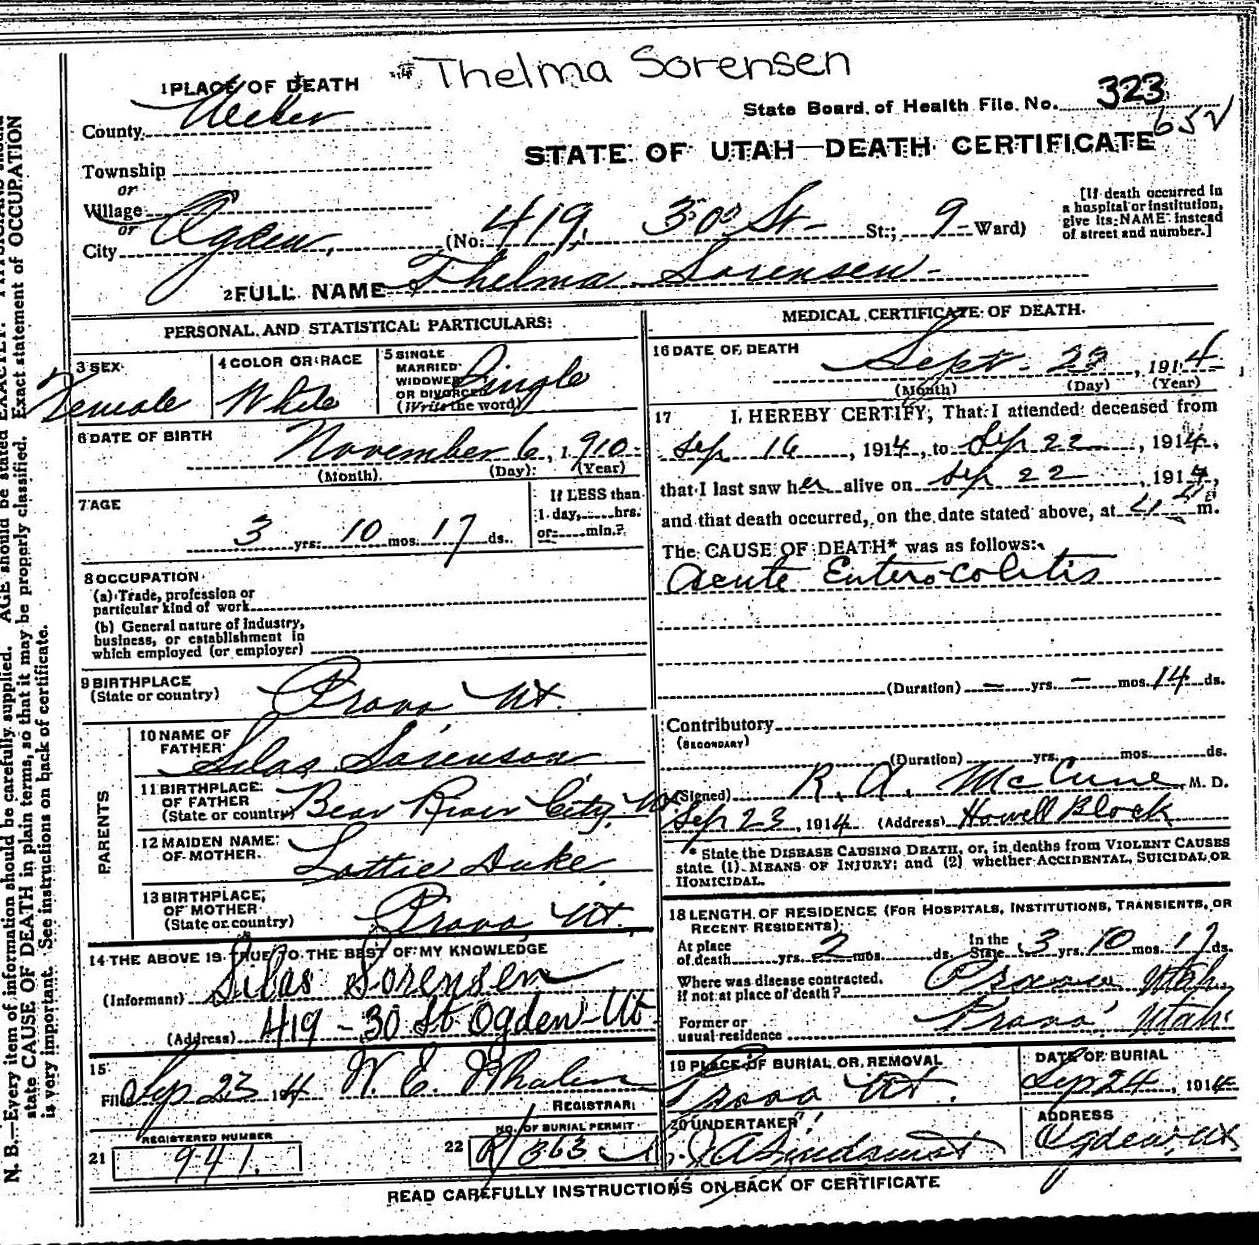 Thelma Sorensen
1 PLACE OF DEATH
State Board of Health File No. 323
652
County Weber
STATE OF UTAH—DEATH CERTIFICATE
Township
or
Village
or
City Ogden, (No. 419, 30th St- St.; 9- Ward)
[If death occurred in
a hospital or institution,
give its NAME instead
of street and number.]
2 FULL NAME Thelma Sorensen-
PERSONAL AND STATISTICAL PARTICULARS:
3 SEX
Female
4 COLOR OR RACE
White
5 SINGLE
MARRIED
WIDOWED
OR DIVORCED
(Write the word)
Single
6 DATE OF BIRTH
November 6, 1910-
(Month) (Day) (Year)
7 AGE
3 yrs. 10 mos. 17 ds.
If LESS than
1 day, hrs.
or min.?
8 OCCUPATION
(a) Trade, profession or
particular kind of work
(b) General nature of industry,
business, or establishment in
which employed (or employer)
9 BIRTHPLACE
(State or country) Provo Ut.
PARENTS
10 NAME OF
FATHER Silas Sorenson
11 BIRTHPLACE
OF FATHER
(State or country) Bear River City, Ut
12 MAIDEN NAME
OF MOTHER Lottie Duke
13 BIRTHPLACE
OF MOTHER
(State or country) Provo Ut.
14 THE ABOVE IS TRUE TO THE BEST OF MY KNOWLEDGE
(Informant) Silas Sorensen
(Address) 419-30 St Ogden-Ut
15
Filed Sep 23 1914 W. E. Whalen
REGISTRAR
REGISTERED NUMBER
21 941.
NO. OF BURIAL PERMIT
22 R/363
MEDICAL CERTIFICATE OF DEATH.
16 DATE OF DEATH
Sept. 23, 1914
(Month) (Day) (Year)
17 I HEREBY CERTIFY, That I attended deceased from
Sep 16, 1914, to Sep 22, 1914,
that I last saw her alive on Sep 22, 1914,
and that death occurred, on the date stated above, at m.
The CAUSE OF DEATH* was as follows:
Acute Entero-colitis
(Duration) — yrs. — mos. 14 ds.
Contributory
(SECONDARY)
(Duration) yrs. mos. ds.
(Signed) R. A. McCune, M. D.
Sep 23, 1914 (Address) Howell Block
* State the DISEASE CAUSING DEATH, or, in deaths from VIOLENT CAUSES
state (1) MEANS OF INJURY; and (2) whether ACCIDENTAL, SUICIDAL OR
HOMICIDAL.
18 LENGTH OF RESIDENCE (FOR HOSPITALS, INSTITUTIONS, TRANSIENTS, OR
RECENT RESIDENTS).
At place
of death yrs. 2 mos. ds. In the
State 3 yrs. 10 mos. 17 ds.
Where was disease contracted,
if not at place of death? Provo Utah,
Former or
usual residence Provo, Utah.
19 PLACE OF BURIAL OR REMOVAL
Provo Ut.
DATE OF BURIAL
Sep 24, 1914
20 UNDERTAKER
J A Lindquist
ADDRESS
Ogden, Ut
READ CAREFULLY INSTRUCTIONS ON BACK OF CERTIFICATE
N. B.—Every item of information should be carefully supplied. AGE should be stated EXACTLY.
state CAUSE OF DEATH in plain terms, so that it may be properly classified. Exact statement of OCCUPATION
is very important. See instructions on back of certificate.